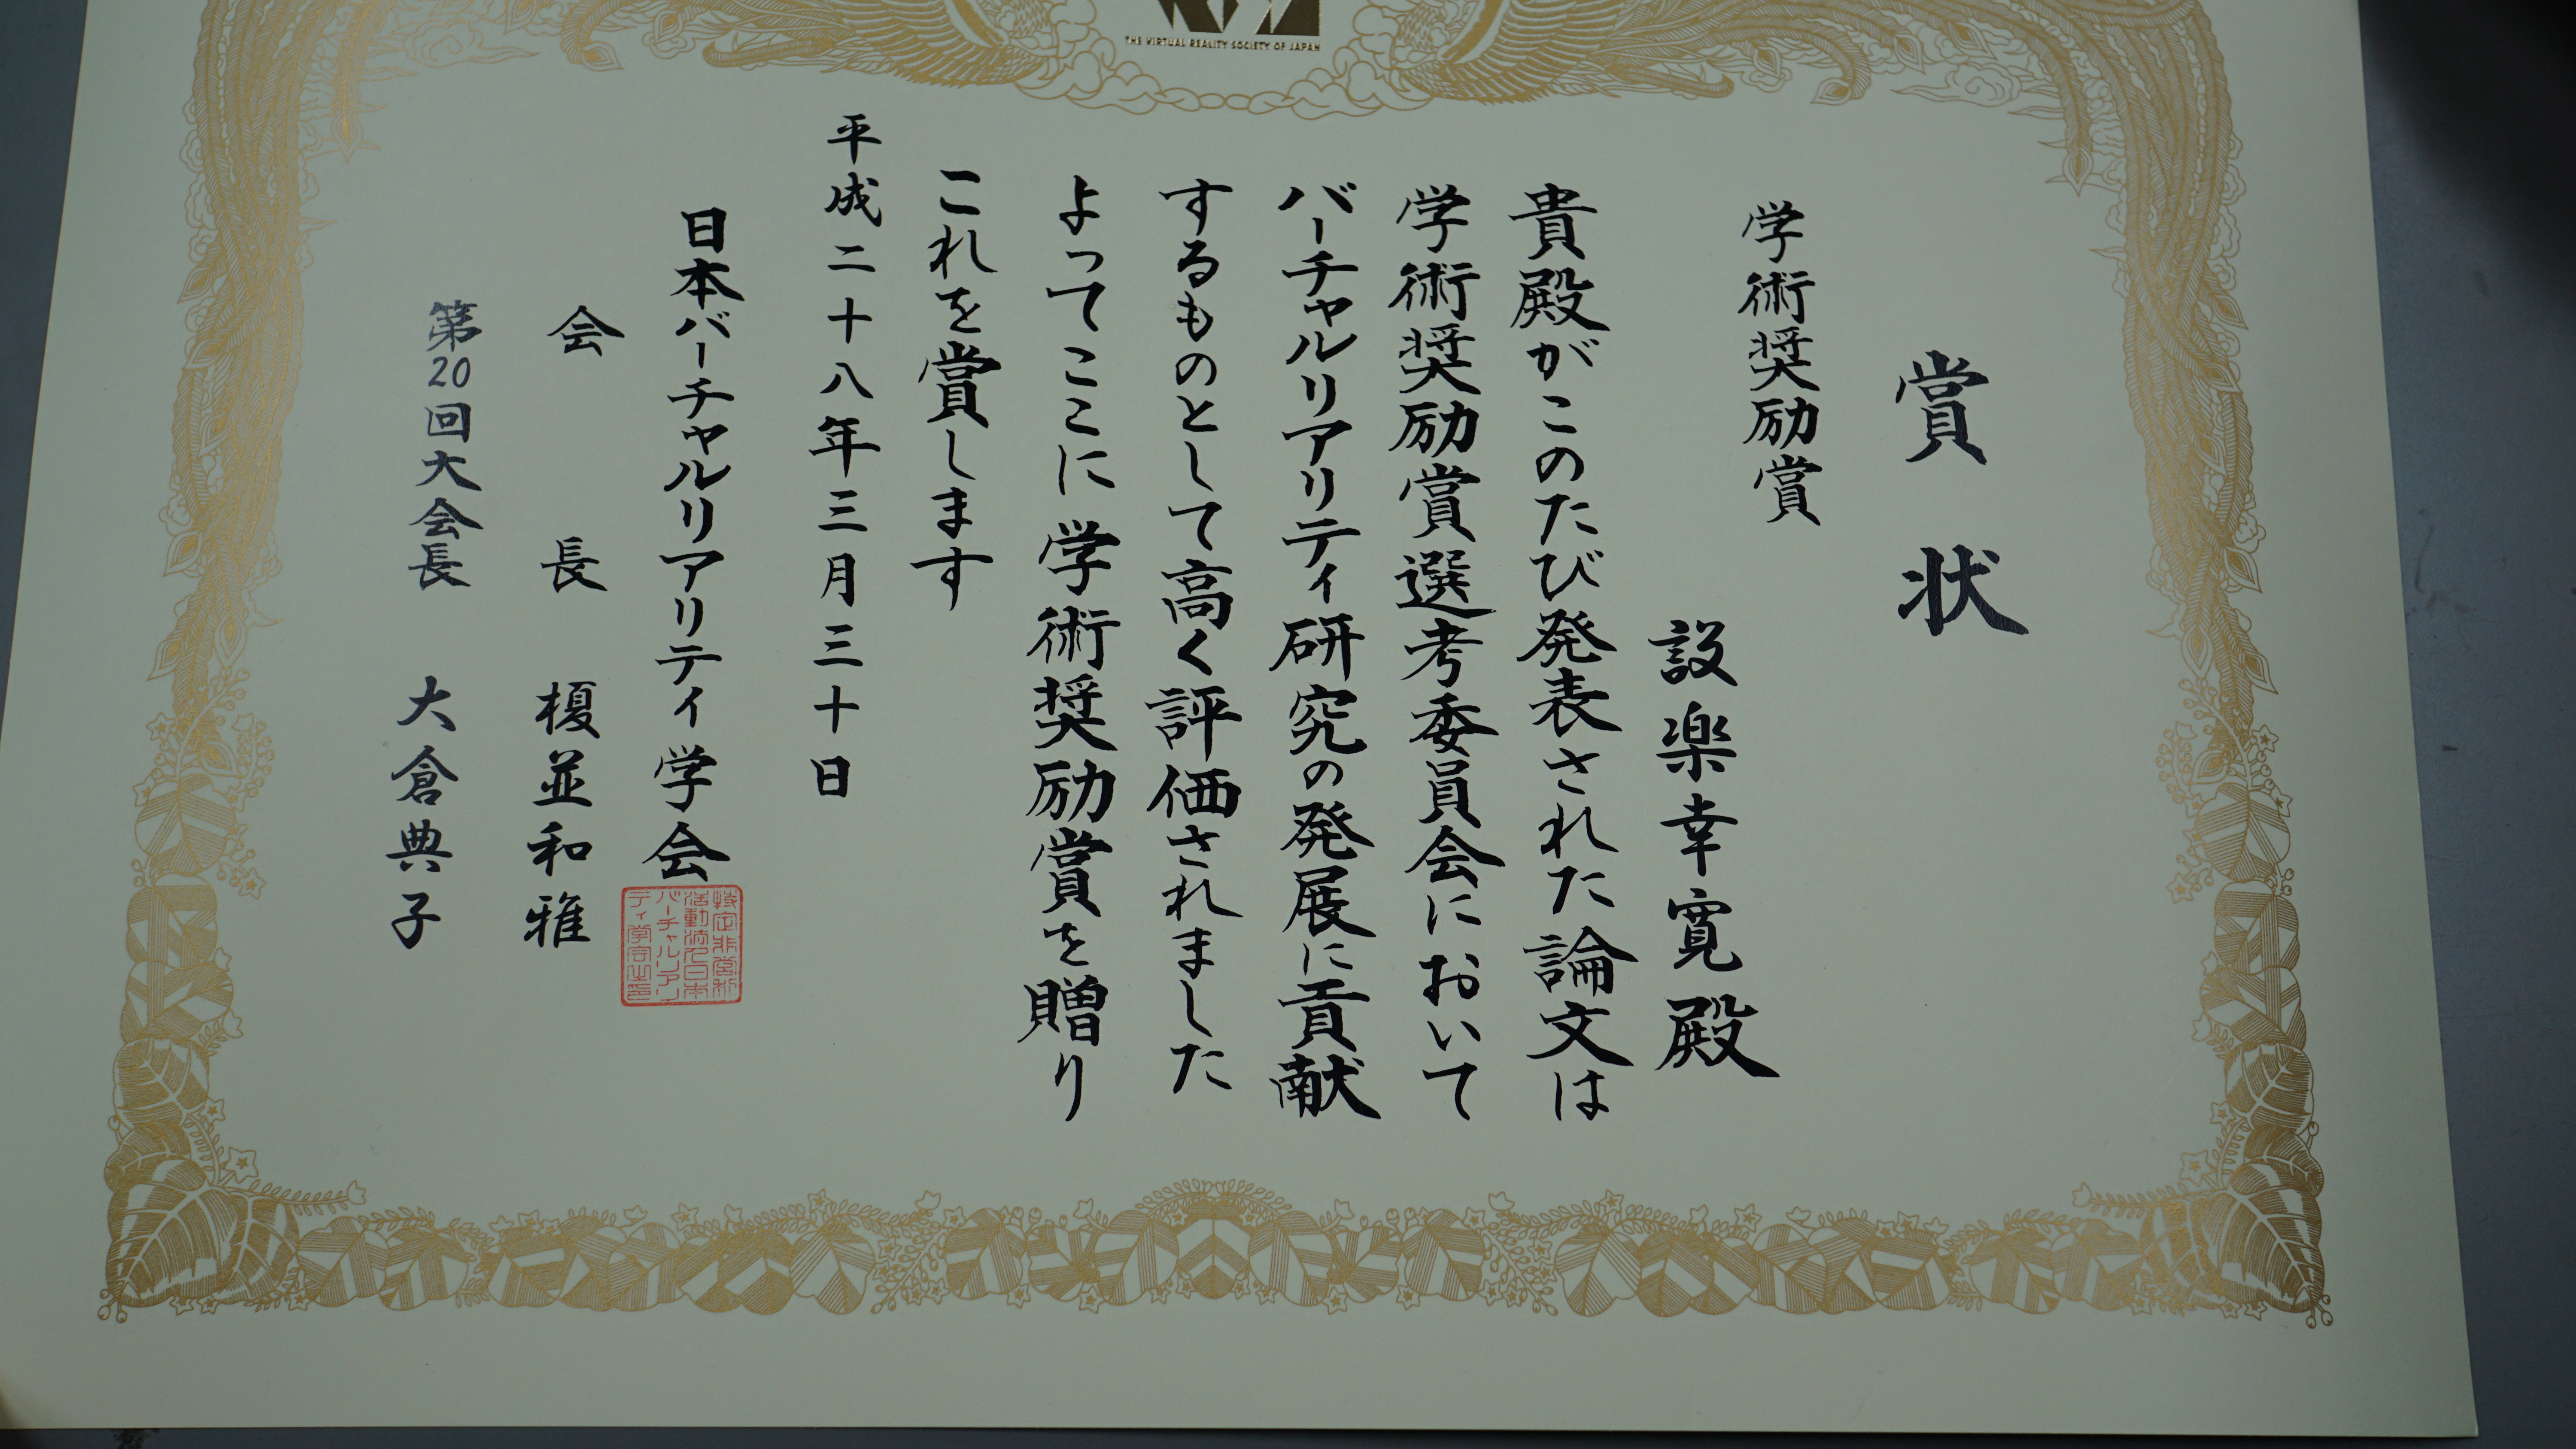 THE VIRTUAL REALITY SOCIETY OF JAPAN
賞状
学術奨励賞
設楽幸寛殿
貴殿がこのたび発表された論文は
学術奨励賞選考委員会において
バーチャルリアリティ研究の発展に貢献
するものとして高く評価されました
よってここに学術奨励賞を贈り
これを賞します
平成二十八年三月三十日
日本バーチャルリアリティ学会
会長 榎並和雅
第20回大会長 大倉典子
特定非営利
活動法人日本
バーチャルリアリ
ティ学会之印